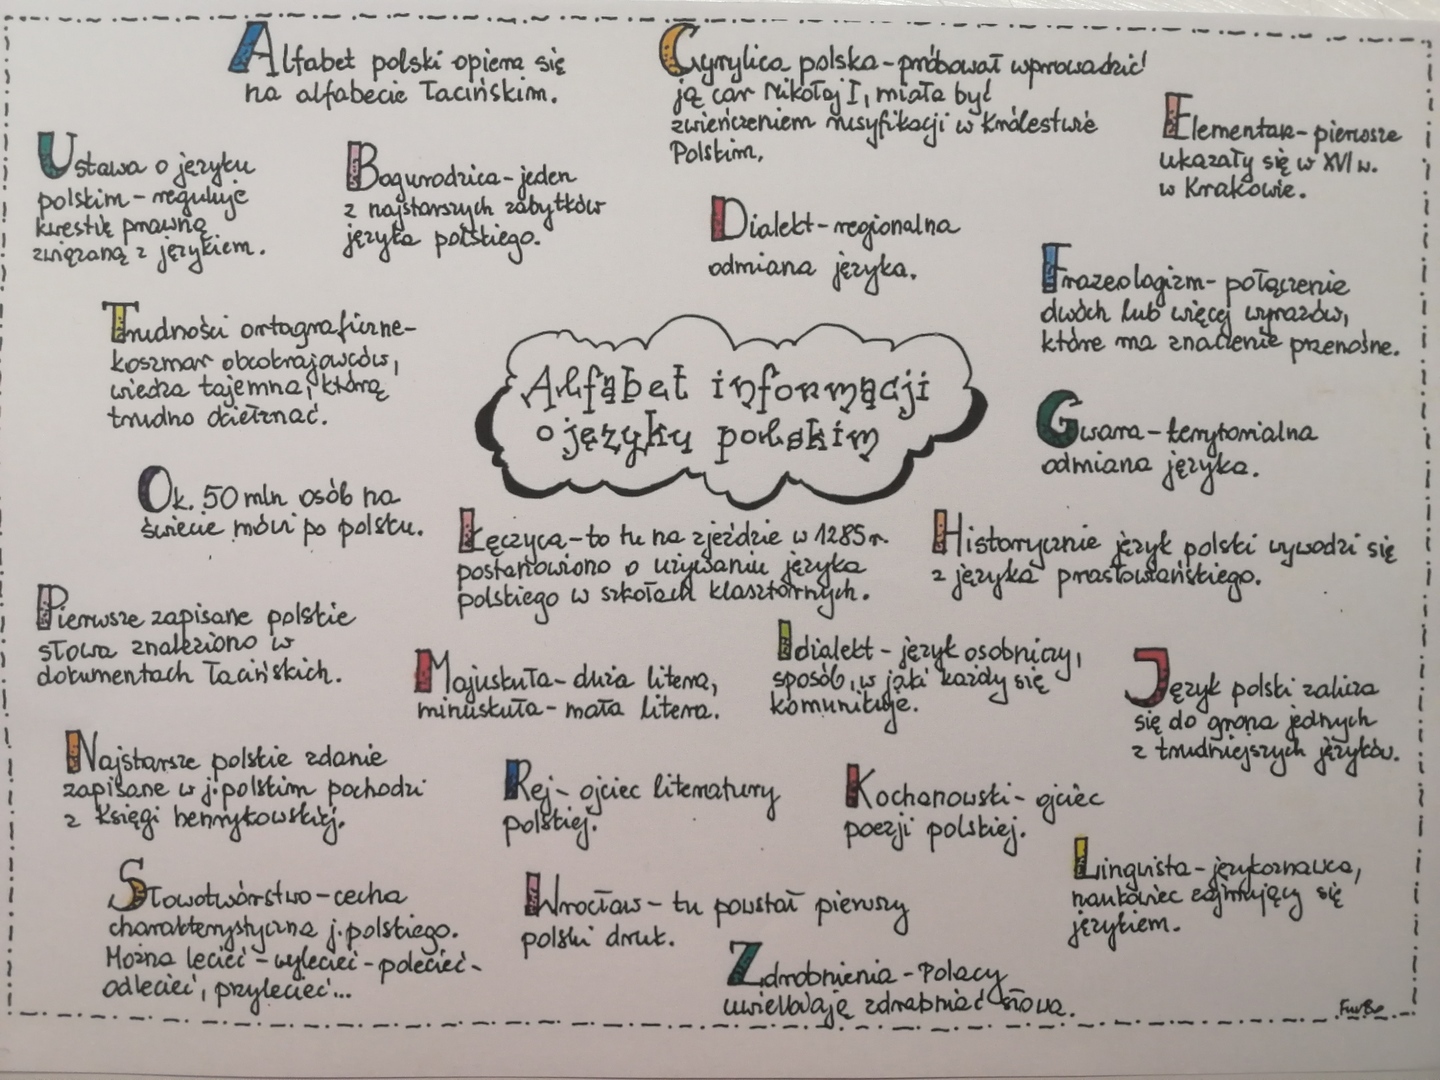 Alfabet polski opiera się
na alfabecie łacińskim.
Cyrylica polska - próbował wprowadzić
ją car Mikołaj I, miała być
zwieńczeniem rusyfikacji w Królestwie
Polskim.
Elementarz - pierwsze
ukazały się w XVI w.
w Krakowie.
Ustawa o języku
polskim - reguluje
kwestię prawną
związaną z językiem.
Bogurodzica - jeden
z najstarszych zabytków
języka polskiego.
Dialekt - regionalna
odmiana języka.
Frazeologizm - połączenie
dwóch lub więcej wyrazów,
które ma znaczenie przenośne.
Trudności ortograficzne -
koszmar obcokrajowców,
wiedza tajemna, którą
trudno okiełznać.
Alfabet informacji
o języku polskim
Gwara - terytorialna
odmiana języka.
Ok. 50 mln osób na
świecie mówi po polsku.
Łęczyca - to tu na zjeździe w 1285 r.
postanowiono o używaniu języka
polskiego w szkołach klasztornych.
Historycznie język polski wywodzi się
z języka prasłowiańskiego.
Pierwsze zapisane polskie
słowa znaleziono w
dokumentach łacińskich.
Majuskuła - duża litera,
minuskuła - mała litera.
Idialekt - język osobniczy,
sposób, w jaki każdy się
komunikuje.
Język polski zalicza
się do grona jednych
z trudniejszych języków.
Najstarsze polskie zdanie
zapisane w j. polskim pochodzi
z Księgi henrykowskiej.
Rej - ojciec literatury
polskiej.
Kochanowski - ojciec
poezji polskiej.
Lingwista - językoznawca,
naukowiec zajmujący się
językiem.
Słowotwórstwo - cecha
charakterystyczna j. polskiego.
Można lecieć - wylecieć - polecieć -
odlecieć, przylecieć...
Wrocław - tu powstał pierwszy
polski druk.
Zdrobnienia - Polacy
uwielbiają zdrabniać słowa.